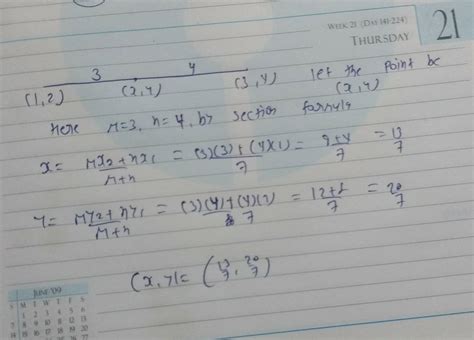 WEEK 21 (DAY 141-224)
THURSDAY
21
3 4
(1,2) (x,y) (3,4) let the point be (x,y)
Here M=3, n=4, by section formula
x = Mx2+nx1/M+n = (3)(3)+(4)(1)/7 = 9+4/7 = 13/7
y = My2+ny1/M+n = (3)(4)+(4)(2)/7 = 12+8/7 = 20/7
(x,y)= (13/7, 20/7)
JUNE '09
S M T W T F S
1 2 3 4 5 6
7 8 9 10 11 12 13